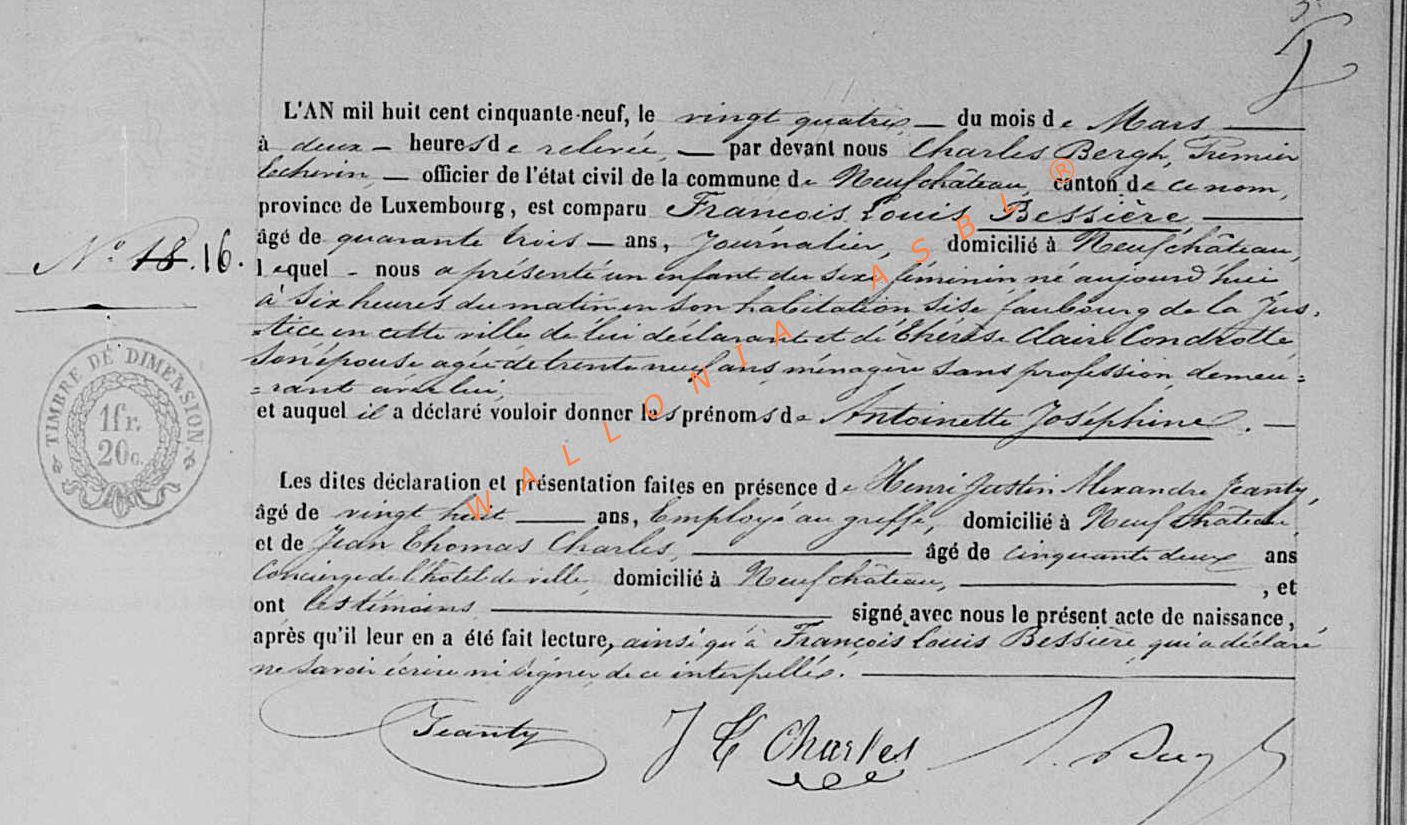 5
L'AN mil huit cent cinquante-neuf, le vingt quatre du mois de Mars
à deux heures de relevée, par devant nous Charles Bergh, Premier
Echevin, officier de l'état civil de la commune de Neufchâteau, canton de ce nom,
province de Luxembourg, est comparu François Louis Bessière,
âgé de quarante trois ans, Journalier, domicilié à Neufchâteau,
N° 18. 16.
lequel nous a présenté un enfant du sexe féminin né aujourd'hui
à six heures du matin en son habitation sise faubourg de la Jus-
-tice en cette ville de lui déclarant et de Thérèse Claire Condrotte
son épouse agée de trente neuf ans, ménagère sans profession, demeu=
=rant avec lui,
et auquel il a déclaré vouloir donner les prénoms de Antoinette Joséphine.
TIMBRE DE DIMENSION
1fr.
20c.
Les dites déclaration et présentation faites en présence de Henri Justin Alexandre Jeanty,
âgé de vingt huit ans, Employé au greffe, domicilié à Neufchâteau
et de Jean Thomas Charles, âgé de cinquante deux ans
Concierge de l'hôtel de ville, domicilié à Neufchâteau, , et
ont les témoins signé avec nous le présent acte de naissance,
après qu'il leur en a été fait lecture, ainsi qu'à François Louis Bessière, qui a déclaré
ne savoir écrire ni signer, de ce interpellé.
Jeanty J T Charles
WALLONIA ASBL ®